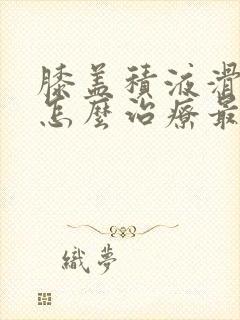 膝盖積液滑
怎麽治療最
織夢